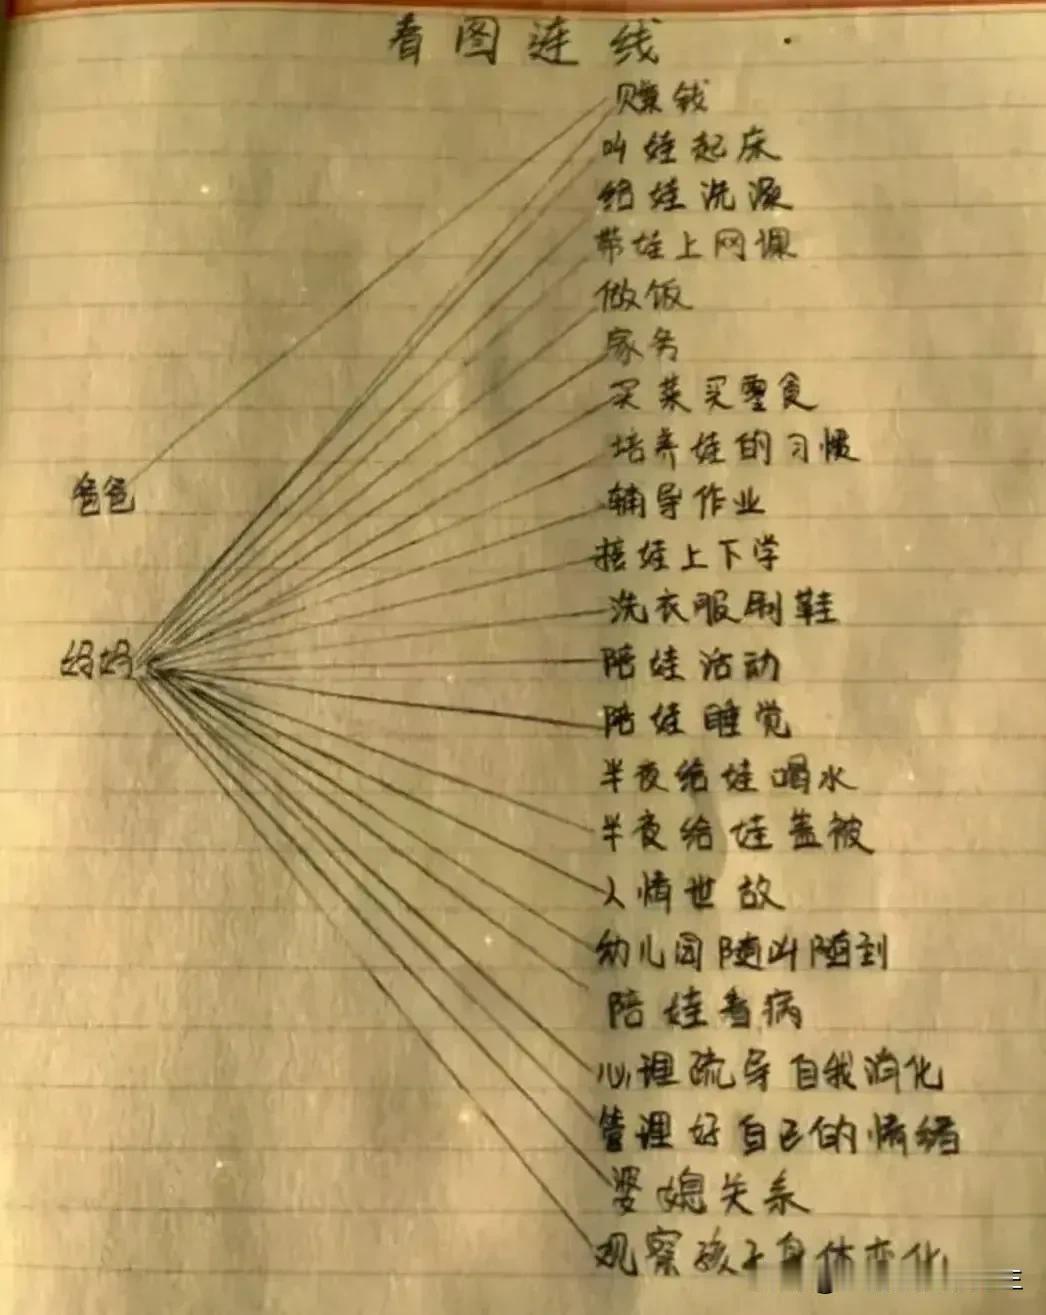 看图连线
赚钱
叫娃起床
给娃洗澡
带娃上网课
做饭
家务
买菜买零食
培养娃的习惯
爸爸
辅导作业
接娃上下学
洗衣服刷鞋
妈妈
陪娃活动
陪娃睡觉
半夜给娃喝水
半夜给娃盖被
人情世故
幼儿园随叫随到
陪娃看病
心理疏导自我消化
管理好自己的情绪
婆媳关系
观察孩子身体变化